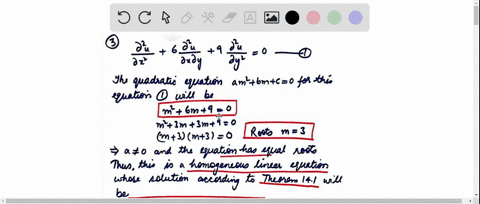 ③ ∂²u/∂x² + 6 ∂²u/∂x∂y + 9 ∂²u/∂y² = 0 —①
The quadratic equation am²+bm+c=0 for this
equation ① will be
m²+6m+9=0
m²+3m+3m+9=0
(m+3)(m+3)=0 Roots m=3
⇒ a≠0 and the equation has equal roots
Thus, this is a homogeneous linear equation
whose solution according to Theorem 14.1 will
be